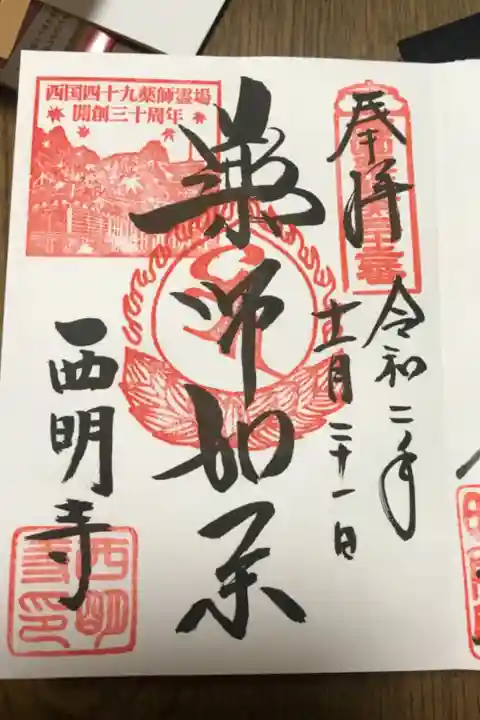 奉拝
令和二年
十一月二十一日
薬師如来
西国四十九薬師霊場
開創三十周年
西明寺
西明
寺印